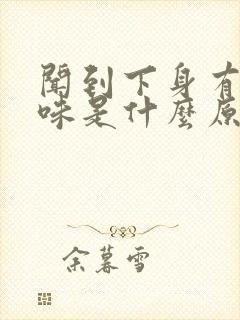 聞到下身有
味是什麼原
余暮雪